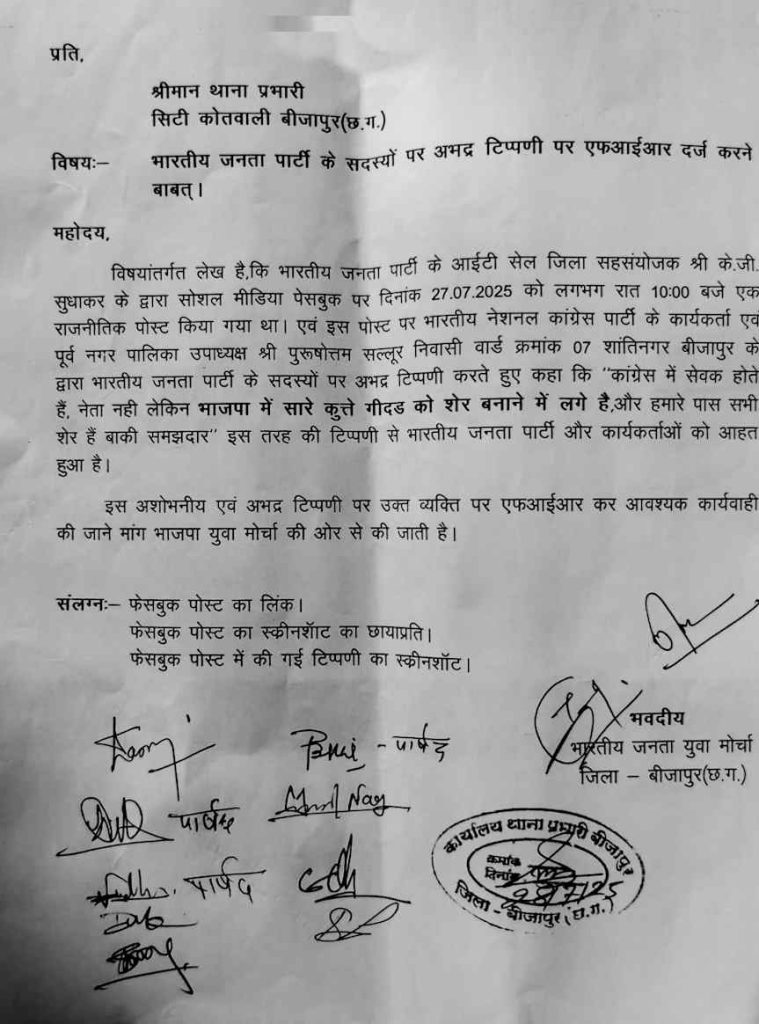 प्रति,
श्रीमान थाना प्रभारी
सिटी कोतवाली बीजापुर(छ.ग.)
विषयः– भारतीय जनता पार्टी के सदस्यों पर अभद्र टिप्पणी पर एफआईआर दर्ज करने
बाबत्।
महोदय,
विषयांतर्गत लेख है,कि भारतीय जनता पार्टी के आईटी सेल जिला सहसंयोजक श्री के.जी.
सुधाकर के द्वारा सोशल मीडिया पेसबुक पर दिनांक 27.07.2025 को लगभग रात 10:00 बजे एक
राजनीतिक पोस्ट किया गया था। एवं इस पोस्ट पर भारतीय नेशनल कांग्रेस पार्टी के कार्यकर्ता एवं
पूर्व नगर पालिका उपाध्यक्ष श्री पुरूषोत्तम सल्लूर निवासी वार्ड क्रमांक 07 शांतिनगर बीजापुर के
द्वारा भारतीय जनता पार्टी के सदस्यों पर अभद्र टिप्पणी करते हुए कहा कि "कांग्रेस में सेवक होते
हैं, नेता नही लेकिन भाजपा में सारे कुत्ते गीदड को शेर बनाने में लगे है,और हमारे पास सभी
शेर हैं बाकी समझदार" इस तरह की टिप्पणी से भारतीय जनता पार्टी और कार्यकर्ताओं को आहत
हुआ है।
इस अशोभनीय एवं अभद्र टिप्पणी पर उक्त व्यक्ति पर एफआईआर कर आवश्यक कार्यवाही
की जाने मांग भाजपा युवा मोर्चा की ओर से की जाती है।
संलग्नः– फेसबुक पोस्ट का लिंक।
फेसबुक पोस्ट का स्कीनशॅाट का छायाप्रति।
फेसबुक पोस्ट में की गई टिप्पणी का स्कीनशॉट।
भवदीय
भारतीय जनता युवा मोर्चा
जिला – बीजापुर(छ.ग.)
– पार्षद
पार्षद
पार्षद
कार्यालय थाना प्रभारी बीजापुर
क्रमांक
दिनांक 28/7/25
जिला – बीजापुर (छ.ग.)